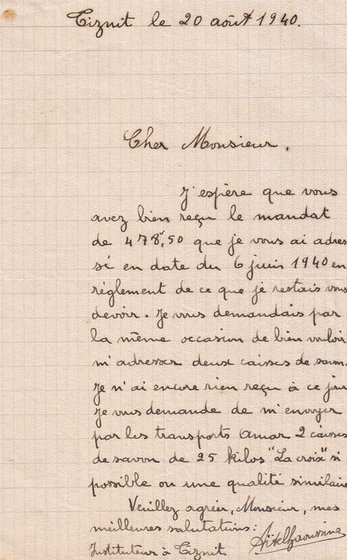 Tiznit le 20 août 1940.
Cher Monsieur.
J'espère que vous
avez bien reçu le mandat
de 478,50 que je vous ai adres
sé en date du 6 juin 1940 en
règlement de ce que je restais vous
devoir. Je vous demandais par
la même occasion de bien vouloir
m'adresser deux caisses de savon.
Je n'ai encore rien reçu à ce jour
Je vous demande de m'envoyer
par les transports Amar 2 caisses
de savon de 25 kilos "La croix" si
possible ou une qualité similaire
Veuillez agréer, Monsieur, mes
meilleures salutations:
Instituteur à Tiznit